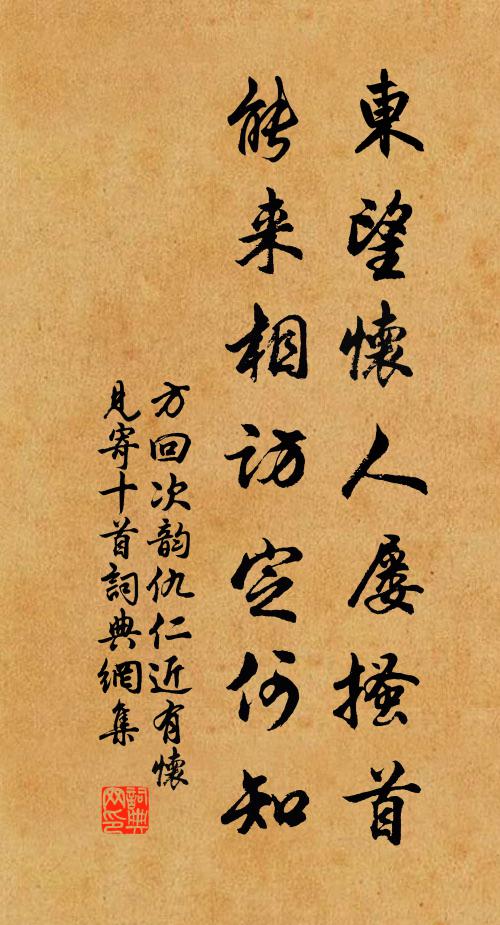 東望懷人屡搔首
能来相訪定何知
方回次韵仇仁近有懷
見寄十首詞典網集
詞典網印